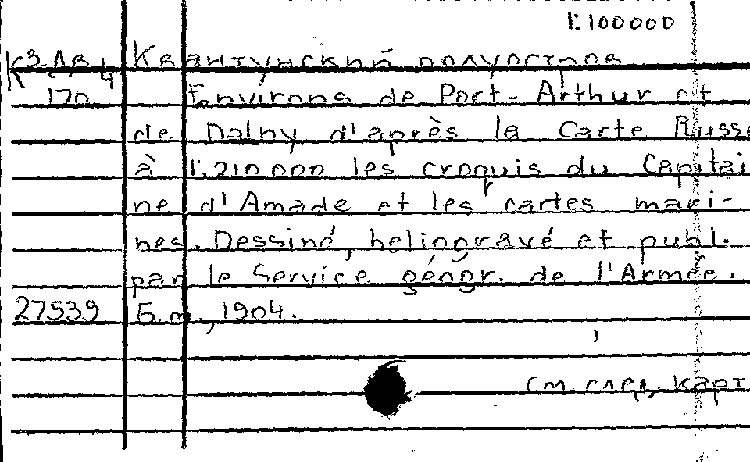 1:100000
К3-Ая 4 Квантунский полуостров
170 Environs de Port-Arthur et
de Dalny d'après la Carte Russe
à 1:210.000 les croquis du Capitai
ne d'Amade et les cartes mari-
nes. Dessiné, heliogravé et publ.
par le Service géogr. de l'Armée.
27539 Б.м., 1904.
См. след. карт